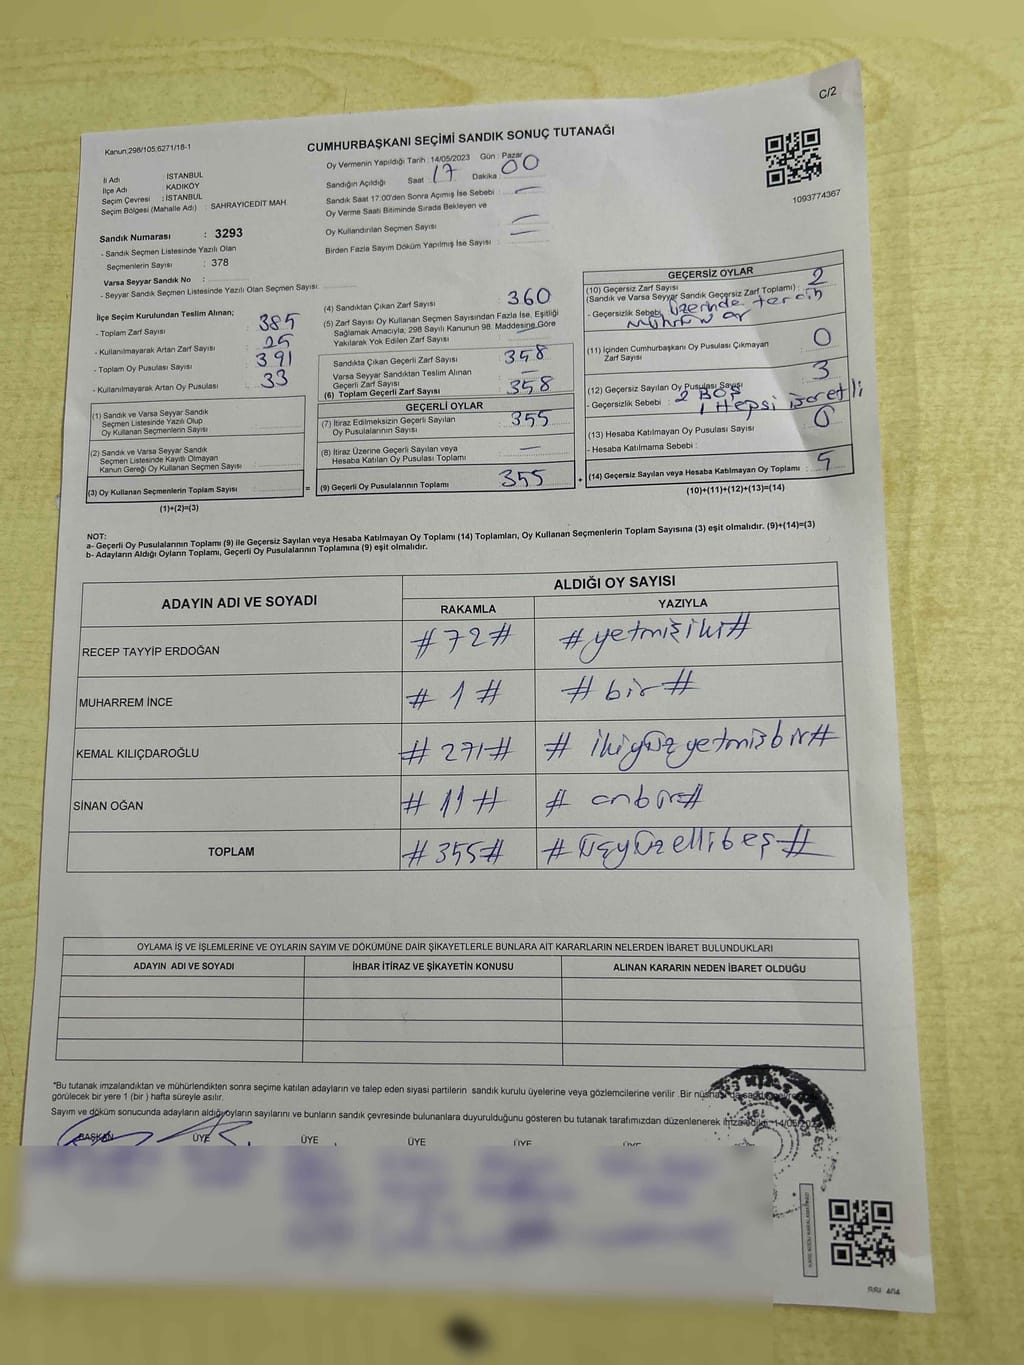 C/2
Kanun:298/105;6271/18-1
CUMHURBAŞKANI SEÇİMİ SANDIK SONUÇ TUTANAĞI
İl Adı : İSTANBUL
İlçe Adı : KADIKÖY
Seçim Çevresi : İSTANBUL
Seçim Bölgesi (Mahalle Adı) : SAHRAYICEDİT MAH
Sandık Numarası : 3293
- Sandık Seçmen Listesinde Yazılı Olan
Seçmenlerin Sayısı : 378
Varsa Seyyar Sandık No :
- Seyyar Sandık Seçmen Listesinde Yazılı Olan Seçmen Sayısı:
Oy Vermenin Yapıldığı Tarih : 14/05/2023 Gün : Pazar
Sandığın Açıldığı Saat 17 Dakika 00
Sandık Saat 17:00'den Sonra Açımış İse Sebebi : —
Oy Verme Saati Bitiminde Sırada Bekleyen ve
Oy Kullandırılan Seçmen Sayısı —
Birden Fazla Sayım Döküm Yapılmış İse Sayısı : —
1093774367
İlçe Seçim Kurulundan Teslim Alınan;
- Toplam Zarf Sayısı : 385
- Kullanılmayarak Artan Zarf Sayısı : 25
- Toplam Oy Pusulası Sayısı : 391
- Kullanılmayarak Artan Oy Pusulası : 33
(1) Sandık ve Varsa Seyyar Sandık
Seçmen Listesinde Yazılı Olup
Oy Kullanan Seçmenlerin Sayısı :
(2) Sandık ve Varsa Seyyar Sandık
Seçmen Listesinde Kayıtlı Olmayan
Kanun Gereği Oy Kullanan Seçmen Sayısı :
(3) Oy Kullanan Seçmenlerin Toplam Sayısı :
(1)+(2)=(3)
=
(4) Sandıktan Çıkan Zarf Sayısı : 360
(5) Zarf Sayısı Oy Kullanan Seçmen Sayısından Fazla İse, Eşitliği
Sağlamak Amacıyla, 298 Sayılı Kanunun 98. Maddesine Göre
Yakılarak Yok Edilen Zarf Sayısı : —
Sandıkta Çıkan Geçerli Zarf Sayısı : 358
Varsa Seyyar Sandıktan Teslim Alınan
Geçerli Zarf Sayısı : —
(6) Toplam Geçerli Zarf Sayısı : 358
GEÇERLİ OYLAR
(7) İtiraz Edilmeksizin Geçerli Sayılan
Oy Pusulalarının Sayısı : 355
(8) İtiraz Üzerine Geçerli Sayılan veya
Hesaba Katılan Oy Pusulası Toplamı : —
(9) Geçerli Oy Pusulalarının Toplamı : 355
+
GEÇERSİZ OYLAR
(10) Geçersiz Zarf Sayısı
(Sandık ve Varsa Seyyar Sandık Geçersiz Zarf Toplamı) : 2
- Geçersizlik Sebebi : üzerinde tercih
mührü var
(11) İçinden Cumhurbaşkanı Oy Pusulası Çıkmayan
Zarf Sayısı : 0
(12) Geçersiz Sayılan Oy Pusulası Sayısı : 3
- Geçersizlik Sebebi : 2 BOŞ
1 Hepsi işaretli
(13) Hesaba Katılmayan Oy Pusulası Sayısı : 0
- Hesaba Katılmama Sebebi :
(14) Geçersiz Sayılan veya Hesaba Katılmayan Oy Toplamı : 5
(10)+(11)+(12)+(13)=(14)
NOT:
a- Geçerli Oy Pusulalarının Toplamı (9) ile Geçersiz Sayılan veya Hesaba Katılmayan Oy Toplamı (14) Toplamları, Oy Kullanan Seçmenlerin Toplam Sayısına (3) eşit olmalıdır. (9)+(14)=(3)
b- Adayların Aldığı Oyların Toplamı, Geçerli Oy Pusulalarının Toplamına (9) eşit olmalıdır.
ADAYIN ADI VE SOYADI
ALDIĞI OY SAYISI
RAKAMLA YAZIYLA
RECEP TAYYİP ERDOĞAN #72# #yetmişiki#
MUHARREM İNCE #1# #bir#
KEMAL KILIÇDAROĞLU #271# #ikiyüzyetmişbir#
SİNAN OĞAN #11# #onbir#
TOPLAM #355# #üçyüzellibeş#
OYLAMA İŞ VE İŞLEMLERİNE VE OYLARIN SAYIM VE DÖKÜMÜNE DAİR ŞİKAYETLERLE BUNLARA AİT KARARLARIN NELERDEN İBARET BULUNDUKLARI
ADAYIN ADI VE SOYADI İHBAR İTİRAZ VE ŞİKAYETİN KONUSU ALINAN KARARIN NEDEN İBARET OLDUĞU
*Bu tutanak imzalandıktan ve mühürlendikten sonra seçime katılan adayların ve talep eden siyasi partilerin sandık kurulu üyelerine veya gözlemcilerine verilir. Bir nüshası da
görülecek bir yere 1 (bir ) hafta süreyle asılır.
Sayım ve döküm sonucunda adayların aldığı oyların sayılarını ve bunların sandık çevresinde bulunanlara duyurulduğunu gösteren bu tutanak tarafımızdan düzenlenerek imzalandı.
BAŞKAN ÜYE ÜYE ÜYE ÜYE